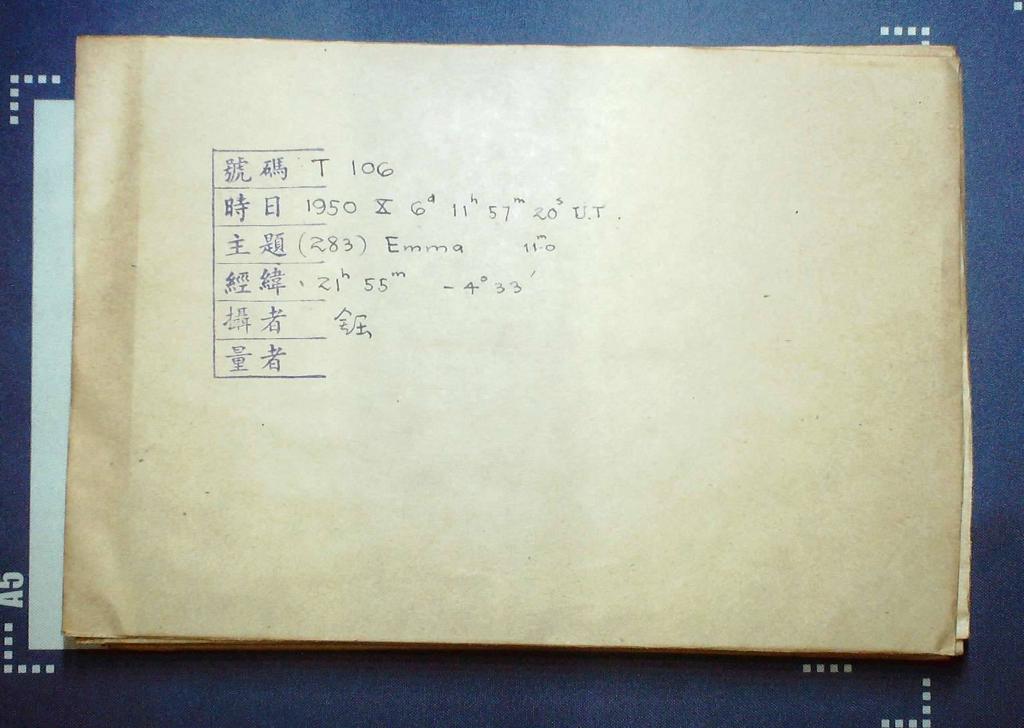 號碼 T 106
時日 1950 X 6ᵈ 11ʰ 57ᵐ 20ˢ U.T.
主題 (283) Emma 11ᵐ0
經緯 21ʰ 55ᵐ -4°33′
攝者
量者
A5